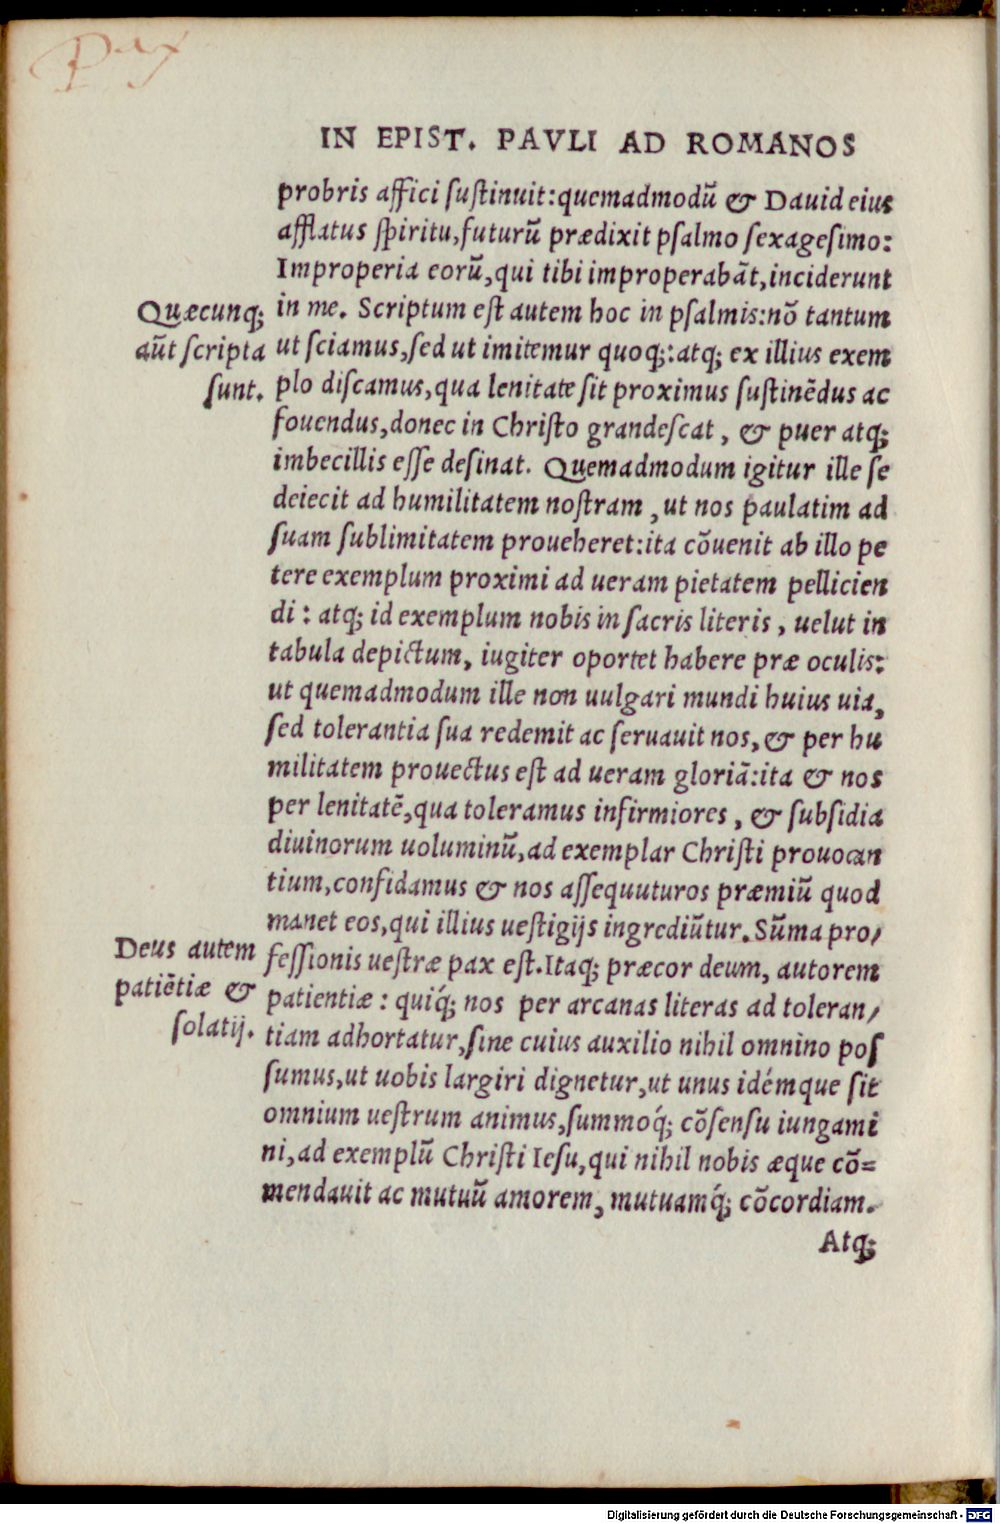 Pax
IN EPIST. PAVLI AD ROMANOS
probris affici ſuſtinuit:quemadmodũ & Dauid eius
afflatus ſpiritu,futurũ prædixit pſalmo ſexageſimo:
Improperia eorũ,qui tibi improperabãt,inciderunt
in me. Scriptum eſt autem hoc in pſalmis:nõ tantum
ut ſciamus,ſed ut imitemur quoq;:atq; ex illius exem
plo diſcamus,qua lenitate ſit proximus ſuſtinẽdus ac
fouendus,donec in Chriſto grandeſcat, & puer atq;
imbecillis eſſe deſinat. Quemadmodum igitur ille ſe
deiecit ad humilitatem noſtram, ut nos paulatim ad
ſuam ſublimitatem proueheret:ita cõuenit ab illo pe
tere exemplum proximi ad ueram pietatem pellicien
di: atq; id exemplum nobis in ſacris literis, uelut in
tabula depictum, iugiter oportet habere præ oculis:
ut quemadmodum ille non uulgari mundi huius uia,
ſed tolerantia ſua redemit ac ſeruauit nos,& per hu
militatem prouectus eſt ad ueram gloriã:ita & nos
per lenitatẽ,qua toleramus infirmiores, & ſubſidia
diuinorum uoluminũ,ad exemplar Chriſti prouocan
tium,confidamus & nos aſſequuturos præmiũ quod
manet eos,qui illius ueſtigijs ingrediũtur.Sũma pro/
feſſionis ueſtræ pax eſt.Itaq; præcor deum, autorem
patientiæ: quiq́; nos per arcanas literas ad toleran/
tiam adhortatur,ſine cuius auxilio nihil omnino poſ
ſumus,ut uobis largiri dignetur,ut unus idémque ſit
omnium ueſtrum animus,ſummoq́; cõſenſu iungami
ni,ad exemplũ Chriſti Ieſu,qui nihil nobis æque cõ=
mendauit ac mutuũ amorem, mutuamq́; cõcordiam.
Atq;
Quæcunq;
aũt ſcripta
ſunt.
Deus autem
patiẽtiæ &
ſolatij.
Digitalisierung gefördert durch die Deutsche Forschungsgemeinschaft - DFG